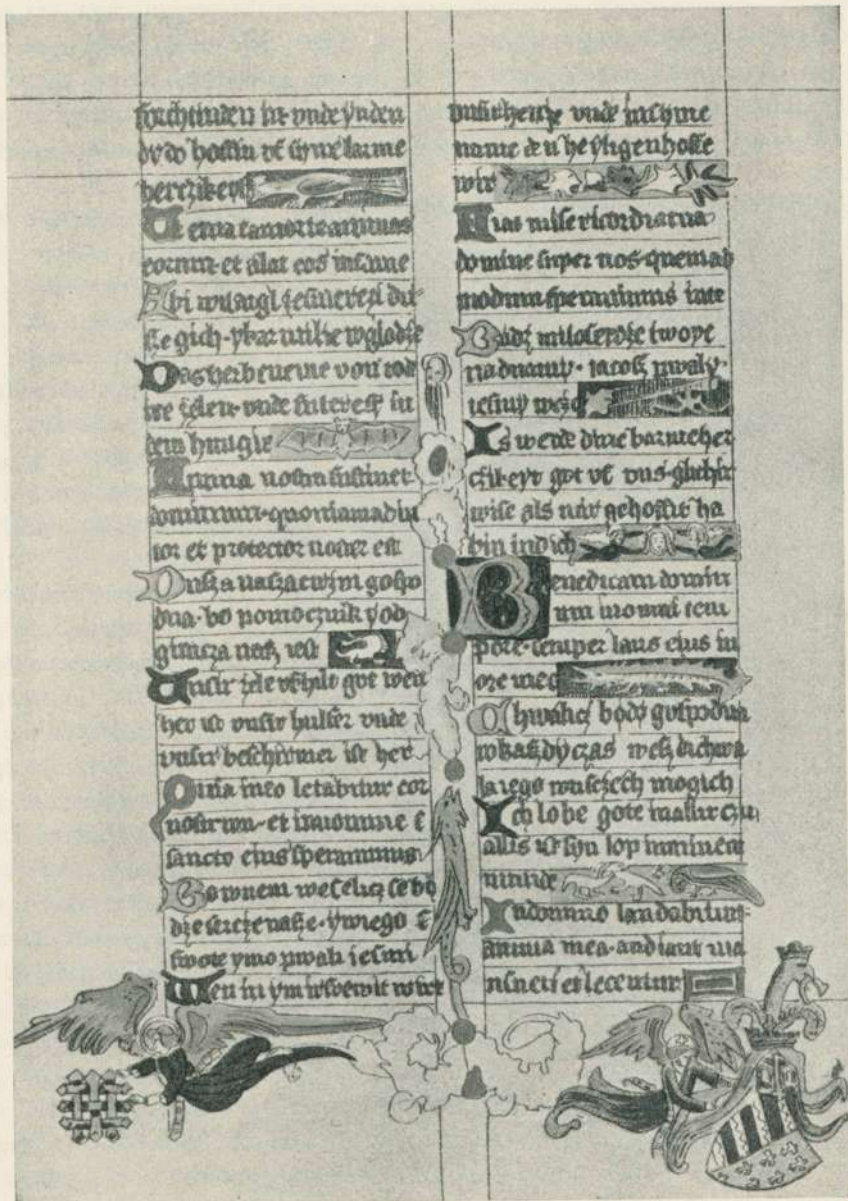 forchtinden in·vnde ynden
dy do hoffin vf syne barme
herczikeyt
Ut eruat a morte animas
eorum·et alat eos in fame
Abi wilargl
gich·ykarmilze wglodze
Das her beneme von tode
ire zelen·vnde
dem hungir
Anima nostra sustinet
dominum·quoniam adiu
tor et protector noster est
Dusza nasza gospo
dna·bo pomocznik y ob
gimcza nasz iest
Unsir zele vfhilt got wen
her ist vnsir hulfer vnde
vnsir beschirmer ist her
Quia in eo letabitur cor
nostrum·et in nomine
sancto eius sperauimus
Bo wnem weselicz se bo
dze sercze nasze·ywiego
swote ymo pwali iesmi
Wen in ym wirt
vnsir hercze vnde in syme
name den heyligen hoffe
wir
Fiat misericordia tua
domine super nos·quemad
modum sperauimus in te
Bodz miloserdze twoye
nad nami·iacosz pwaly
iesmy wcze
Is werde dine barmeher
czikeyt got vf vns·glichir
wise als wir gehoffit ha
bin in dich
Benedicam domin
um in omni tem
pore·semper laus eius in
ore meo
Chwalicz bodo gospodna
wkaszdy czas wesz dichwa
la iego wuszczech mogich
Ich lobe gote in allir czit
allis ist syn lop in minem
munde
In domino laudabitur
anima mea·audiant ma
nsueti et letentur